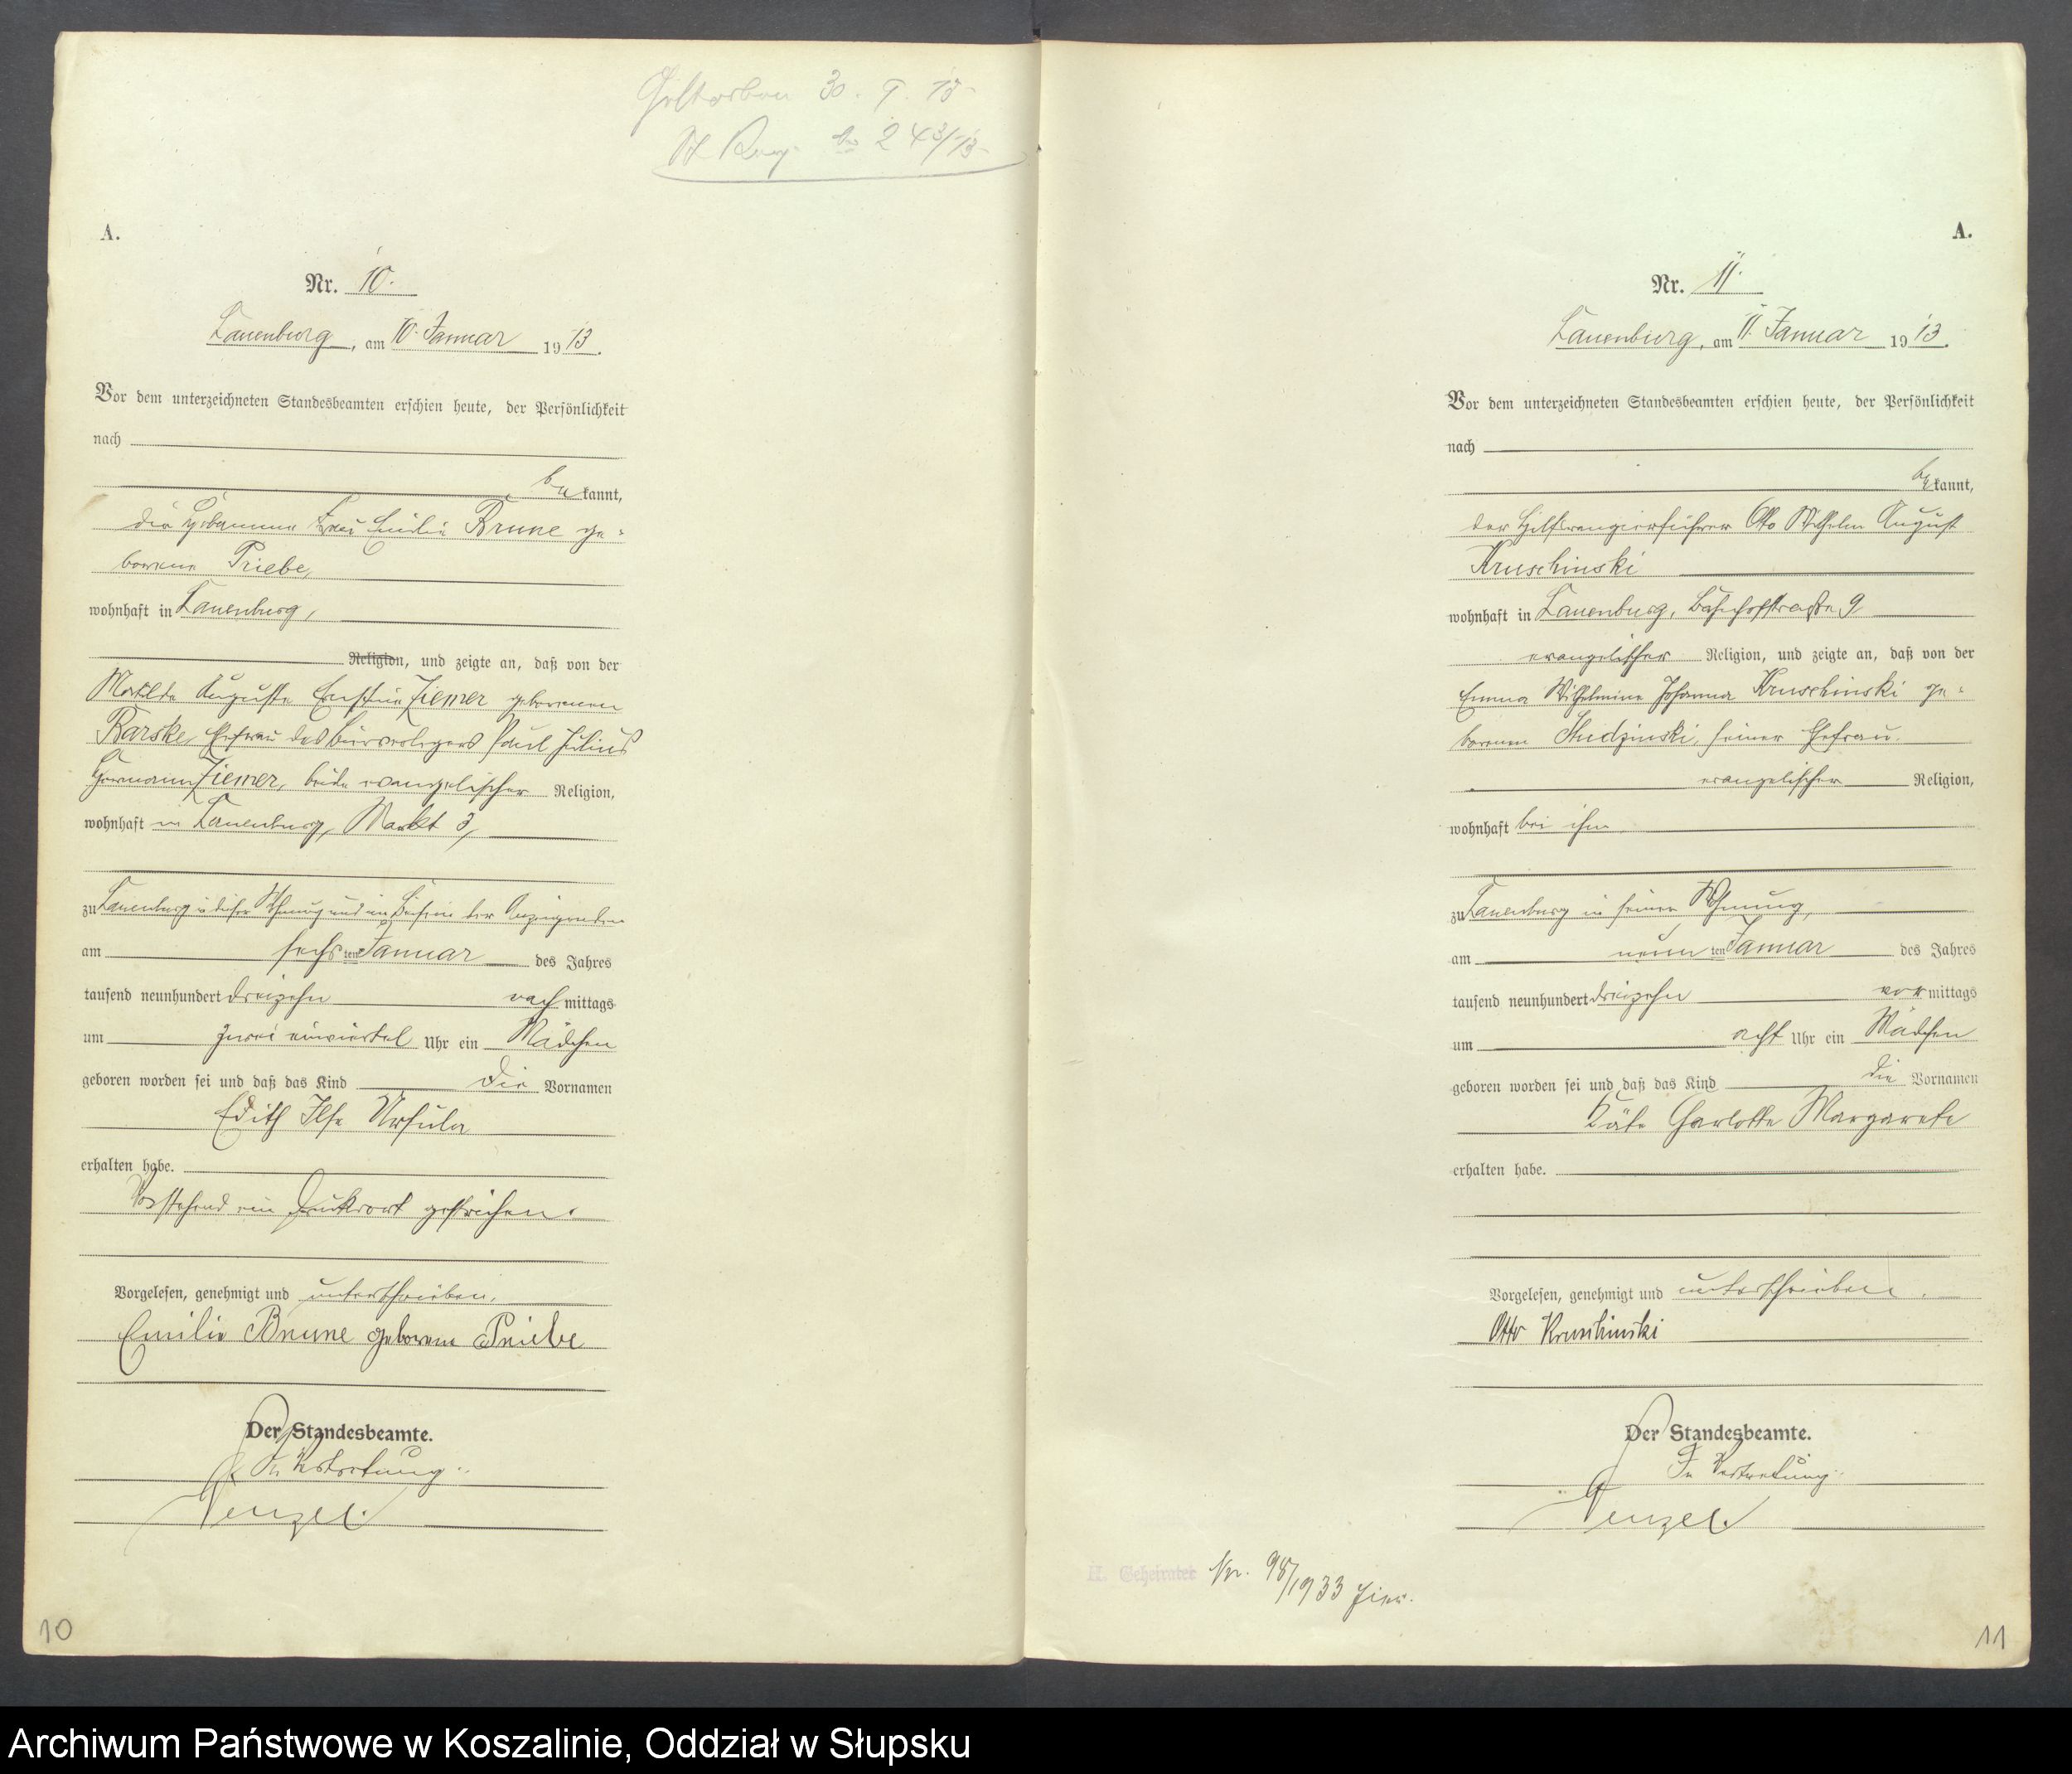 Gestorben 30. 9. 13
St. Reg. No 243/13
A.
Nr. 10.
Lauenburg, am 10. Januar 1913.
Vor dem unterzeichneten Standesbeamten erschien heute, der Persönlichkeit
nach
bekannt,
die Hebamme Frau Emilie Brune ge-
borene Priebe,
wohnhaft in Lauenburg,
Religion, und zeigte an, daß von der
Matilde Auguste Ernstine Ziemer geborenen
Barske, Ehefrau des Paul Julius
Hermann Ziemer, beide evangelischer Religion,
wohnhaft in Lauenburg, Markt 3,
zu Lauenburg in dieser Wohnung und im Beisein der Anzeigenden
am sechsten Januar des Jahres
tausend neunhundert dreizehn nachmittags
um zwei einviertel Uhr ein Mädchen
geboren worden sei und daß das Kind die Vornamen
Edith Ilse Ursula
erhalten habe.
Vorstehend ein Druckwort gestrichen.
Vorgelesen, genehmigt und unterschrieben.
Emilie Brune geborene Priebe
Der Standesbeamte.
In Vertretung.
Wenzel.
10
A.
Nr. 11.
Lauenburg, am 11. Januar 1913.
Vor dem unterzeichneten Standesbeamten erschien heute, der Persönlichkeit
nach
bekannt,
der Hilfsrangierführer Otto Wilhelm August
Kruschinski
wohnhaft in Lauenburg, Bahnhofstraße 9
evangelischer Religion, und zeigte an, daß von der
Emma Wilhelmine Johanna Kruschinski ge-
borenen Studzinski, seiner Ehefrau
evangelischer Religion,
wohnhaft bei ihm
zu Lauenburg in seiner Wohnung,
am neunten Januar des Jahres
tausend neunhundert dreizehn vormittags
um acht Uhr ein Mädchen
geboren worden sei und daß das Kind die Vornamen
Käte Charlotte Margarete
erhalten habe.
Vorgelesen, genehmigt und unterschrieben.
Otto Kruschinski
Der Standesbeamte.
In Vertretung.
Wenzel.
Geheiratet Nr. 98/1933 hier.
11
Archiwum Państwowe w Koszalinie, Oddział w Słupsku